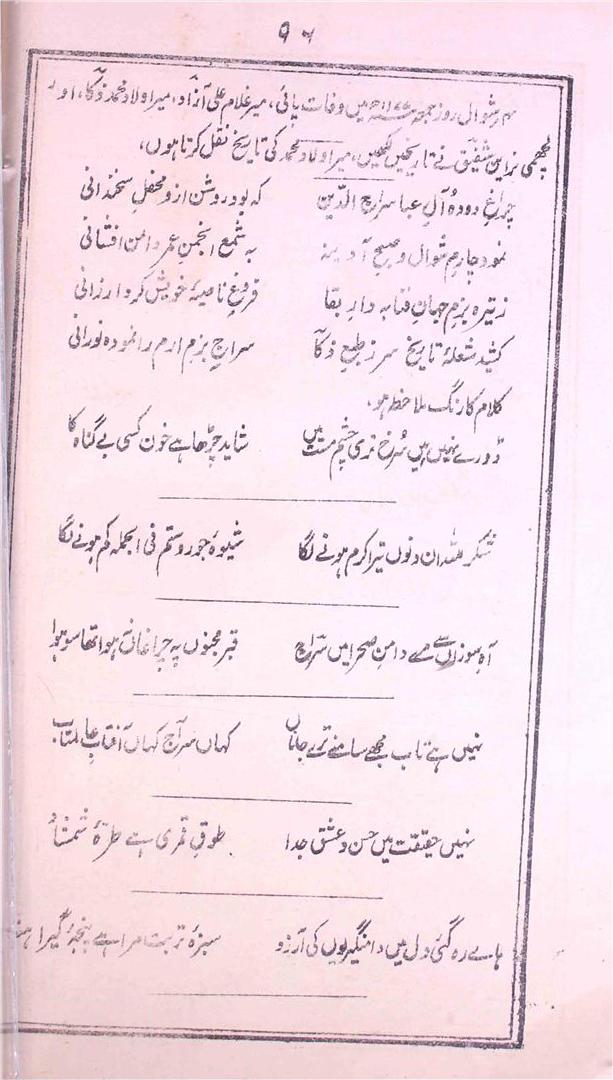 ۹۶
۴ شوال روز جمعہ ۱۱۷۷ھ میں وفات پائی، میر غلام علی آزاد، میر اولاد محمد ذکا، اور
لچھمی نراین شفیق نے تاریخیں لکھیں، میر اولاد محمد کی تاریخ نقل کرتا ہوں،
چراغِ دودۂ آلِ عبا سراج الدین کہ بود روشن ازو محفلِ سخندانی
نمود چارم شوال و صبح آدینہ بہ شمع انجمنِ عمر دامن افشانی
زتیرہ بزمِ جہانِ فنا بہ دارِ بقا فروغِ ناصیۂ خویش کرد ارزانی
کشید شعلۂ تاریخ سر ز طبعِ ذکا سراجِ بزمِ ارم را نمودہ نورانی
کلام کا رنگ ملاحظہ ہو۔
ڈورے نہیں ہیں سُرخ تری چشم مست میں شاید چڑھا ہے خون کسی بے گناہ کا
شکر للہ ان دنوں تیرا کرم ہونے لگا شیوۂ جور و ستم فی الجملہ کم ہونے لگا
آہِ سوزاں سے مرے دامنِ صحرا میں سراج قبر مجنوں پہ چراغاں نہ ہوا تھا سو ہوا
نہیں ہے تاب مجھے سامنے ترے جاناں کہاں سراج کہاں آفتابِ عالمتاب
نہیں حقیقت میں حسن و عشق جدا طوقِ قمری ہے طرۂ شمشاد
ہائے رہ گئی دل میں دامنگیریوں کی آرزو سبزۂ تربت مرا ہے پنجۂ گیرا ہنوز